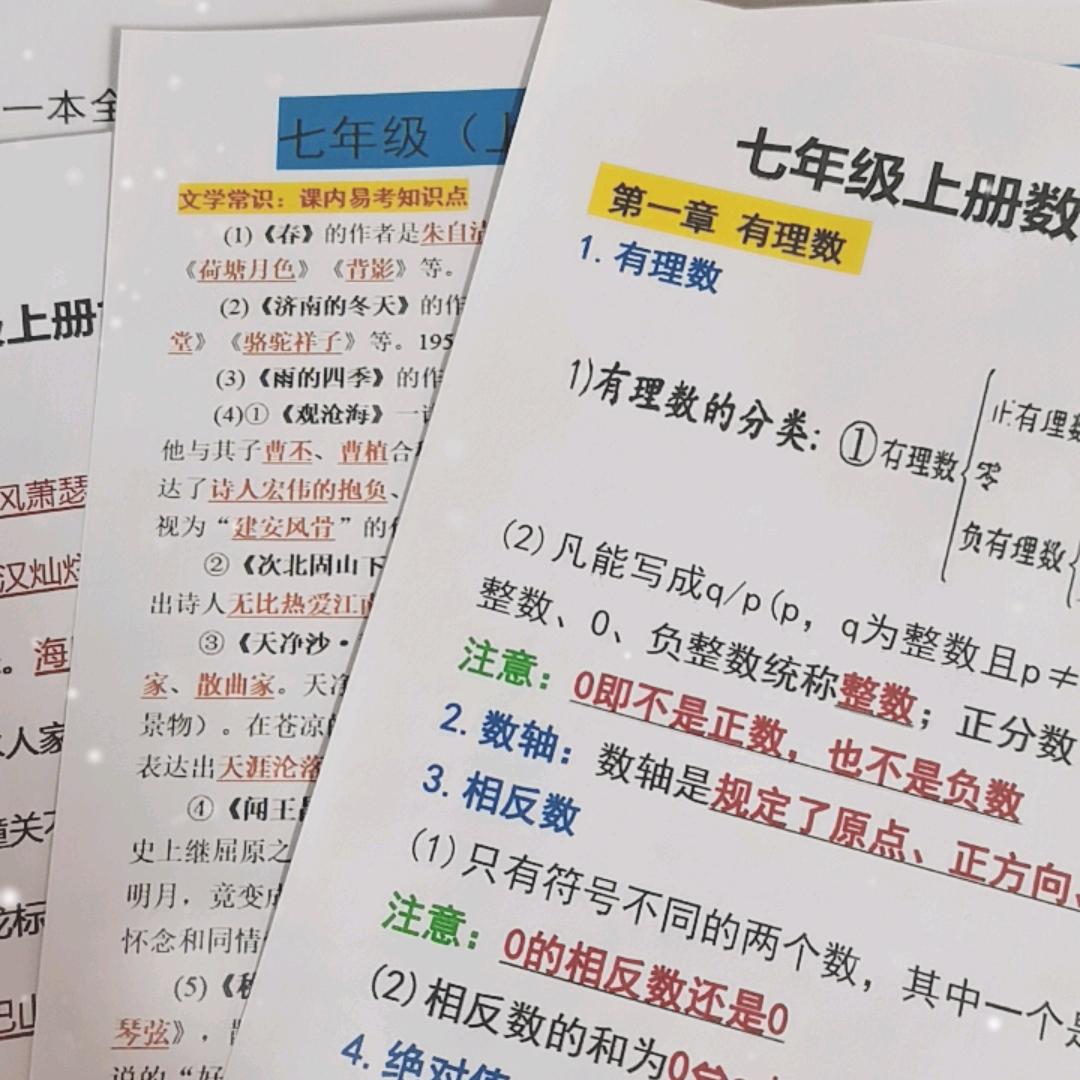 一本全
级上册
风萧瑟
汉灿烂
。海
人家
潼关
龙标
巴山
七年级（上
文学常识：课内易考知识点
(1)《春》的作者是朱自清
《荷塘月色》《背影》等。
(2)《济南的冬天》的作
堂》《骆驼祥子》等。195
(3)《雨的四季》的作
(4)①《观沧海》一诗
他与其子曹丕、曹植合称
达了诗人宏伟的抱负、
视为“建安风骨”的作
②《次北固山下
出诗人无比热爱江南
③《天净沙·
家、散曲家。天净
景物）。在苍凉的
表达出天涯沦落
④《闻王昌
史上继屈原之
明月，竟变成
怀念和同情
(5)《秋
琴弦》，
说的“好
七年级上册数
第一章 有理数
1. 有理数
1)有理数的分类：①有理数
正有理数
零
负有理数
(2) 凡能写成q/p(p，q为整数且p≠
整数、0、负整数统称整数；正分数
注意：0即不是正数，也不是负数
2. 数轴：数轴是规定了原点、正方向、
3. 相反数
(1) 只有符号不同的两个数，其中一个是
注意：0的相反数还是0
(2) 相反数的和为0
4. 绝对值